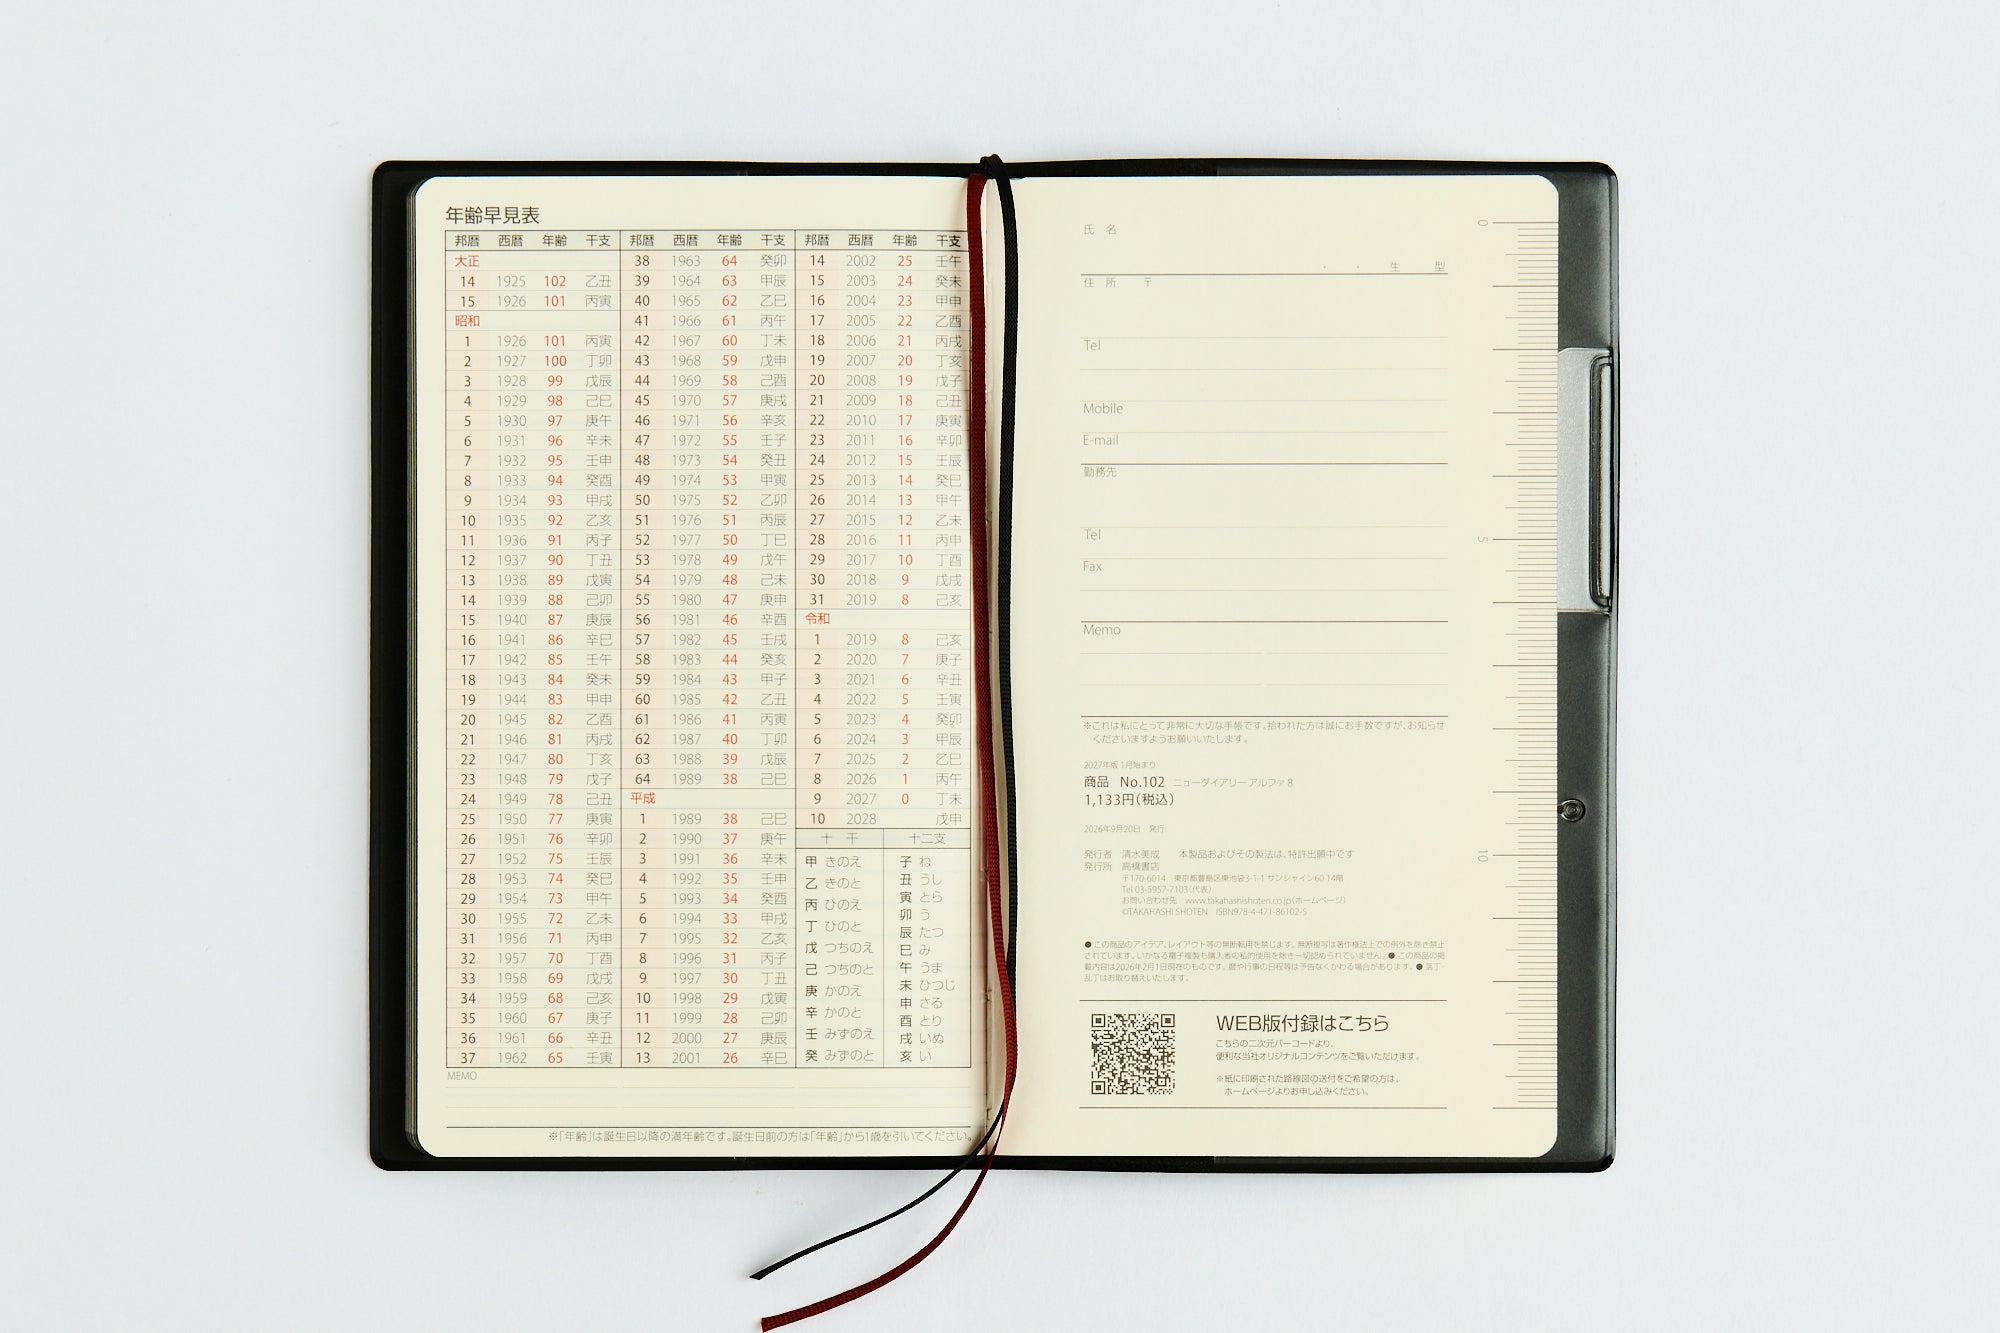 年齢早見表
邦暦 西暦 年齢 干支
大正
14 1925 102 乙丑
15 1926 101 丙寅
昭和
1 1926 101 丙寅
2 1927 100 丁卯
3 1928 99 戊辰
4 1929 98 己巳
5 1930 97 庚午
6 1931 96 辛未
7 1932 95 壬申
8 1933 94 癸酉
9 1934 93 甲戌
10 1935 92 乙亥
11 1936 91 丙子
12 1937 90 丁丑
13 1938 89 戊寅
14 1939 88 己卯
15 1940 87 庚辰
16 1941 86 辛巳
17 1942 85 壬午
18 1943 84 癸未
19 1944 83 甲申
20 1945 82 乙酉
21 1946 81 丙戌
22 1947 80 丁亥
23 1948 79 戊子
24 1949 78 己丑
25 1950 77 庚寅
26 1951 76 辛卯
27 1952 75 壬辰
28 1953 74 癸巳
29 1954 73 甲午
30 1955 72 乙未
31 1956 71 丙申
32 1957 70 丁酉
33 1958 69 戊戌
34 1959 68 己亥
35 1960 67 庚子
36 1961 66 辛丑
37 1962 65 壬寅
邦暦 西暦 年齢 干支
38 1963 64 癸卯
39 1964 63 甲辰
40 1965 62 乙巳
41 1966 61 丙午
42 1967 60 丁未
43 1968 59 戊申
44 1969 58 己酉
45 1970 57 庚戌
46 1971 56 辛亥
47 1972 55 壬子
48 1973 54 癸丑
49 1974 53 甲寅
50 1975 52 乙卯
51 1976 51 丙辰
52 1977 50 丁巳
53 1978 49 戊午
54 1979 48 己未
55 1980 47 庚申
56 1981 46 辛酉
57 1982 45 壬戌
58 1983 44 癸亥
59 1984 43 甲子
60 1985 42 乙丑
61 1986 41 丙寅
62 1987 40 丁卯
63 1988 39 戊辰
64 1989 38 己巳
平成
1 1989 38 己巳
2 1990 37 庚午
3 1991 36 辛未
4 1992 35 壬申
5 1993 34 癸酉
6 1994 33 甲戌
7 1995 32 乙亥
8 1996 31 丙子
9 1997 30 丁丑
10 1998 29 戊寅
11 1999 28 己卯
12 2000 27 庚辰
13 2001 26 辛巳
邦暦 西暦 年齢 干支
14 2002 25 壬午
15 2003 24 癸未
16 2004 23 甲申
17 2005 22 乙酉
18 2006 21 丙戌
19 2007 20 丁亥
20 2008 19 戊子
21 2009 18 己丑
22 2010 17 庚寅
23 2011 16 辛卯
24 2012 15 壬辰
25 2013 14 癸巳
26 2014 13 甲午
27 2015 12 乙未
28 2016 11 丙申
29 2017 10 丁酉
30 2018 9 戊戌
31 2019 8 己亥
令和
1 2019 8 己亥
2 2020 7 庚子
3 2021 6 辛丑
4 2022 5 壬寅
5 2023 4 癸卯
6 2024 3 甲辰
7 2025 2 乙巳
8 2026 1 丙午
9 2027 0 丁未
10 2028 戊申
十干
甲 きのえ
乙 きのと
丙 ひのえ
丁 ひのと
戊 つちのえ
己 つちのと
庚 かのえ
辛 かのと
壬 みずのえ
癸 みずのと
十二支
子 ね
丑 うし
寅 とら
卯 う
辰 たつ
巳 み
午 うま
未 ひつじ
申 さる
酉 とり
戌 いぬ
亥 い
MEMO
※「年齢」は誕生日以降の満年齢です。誕生日前の方は「年齢」から1歳を引いてください。
氏 名
・ ・ 生 型
住 所 〒
Tel
Mobile
E-mail
勤務先
Tel
Fax
Memo
※これは私にとって非常に大切な手帳です。拾われた方は誠にお手数ですが、お知らせ
くださいますようお願いいたします。
2027年版 1月始まり
商品 No.102 ニューダイアリー アルファ 8
1,133円(税込)
2026年9月20日 発行
発行者 清水美成 本製品およびその製法は、特許出願中です
発行所 高橋書店
〒170-6014 東京都豊島区東池袋3-1-1 サンシャイン60 14階
Tel 03-5957-7103(代表)
お問い合わせ先 www.takahashishoten.co.jp(ホームページ)
©TAKAHASHI SHOTEN ISBN978-4-471-86102-5
● この商品のアイデア、レイアウト等の無断転用を禁じます。無断複写は著作権法上での例外を除き禁止
されています。いかなる電子複製も購入者の私的使用を除き一切認められていません。● この商品の掲
載内容は2026年2月1日現在のものです。暦や行事の日程等は予告なくかわる場合があります。● 落丁・
乱丁はお取り替えいたします。
WEB版付録はこちら
こちらの二次元バーコードより、
便利な当社オリジナルコンテンツをご覧いただけます。
※紙に印刷された路線図の送付をご希望の方は、
ホームページよりお申し込みください。
0
5
10